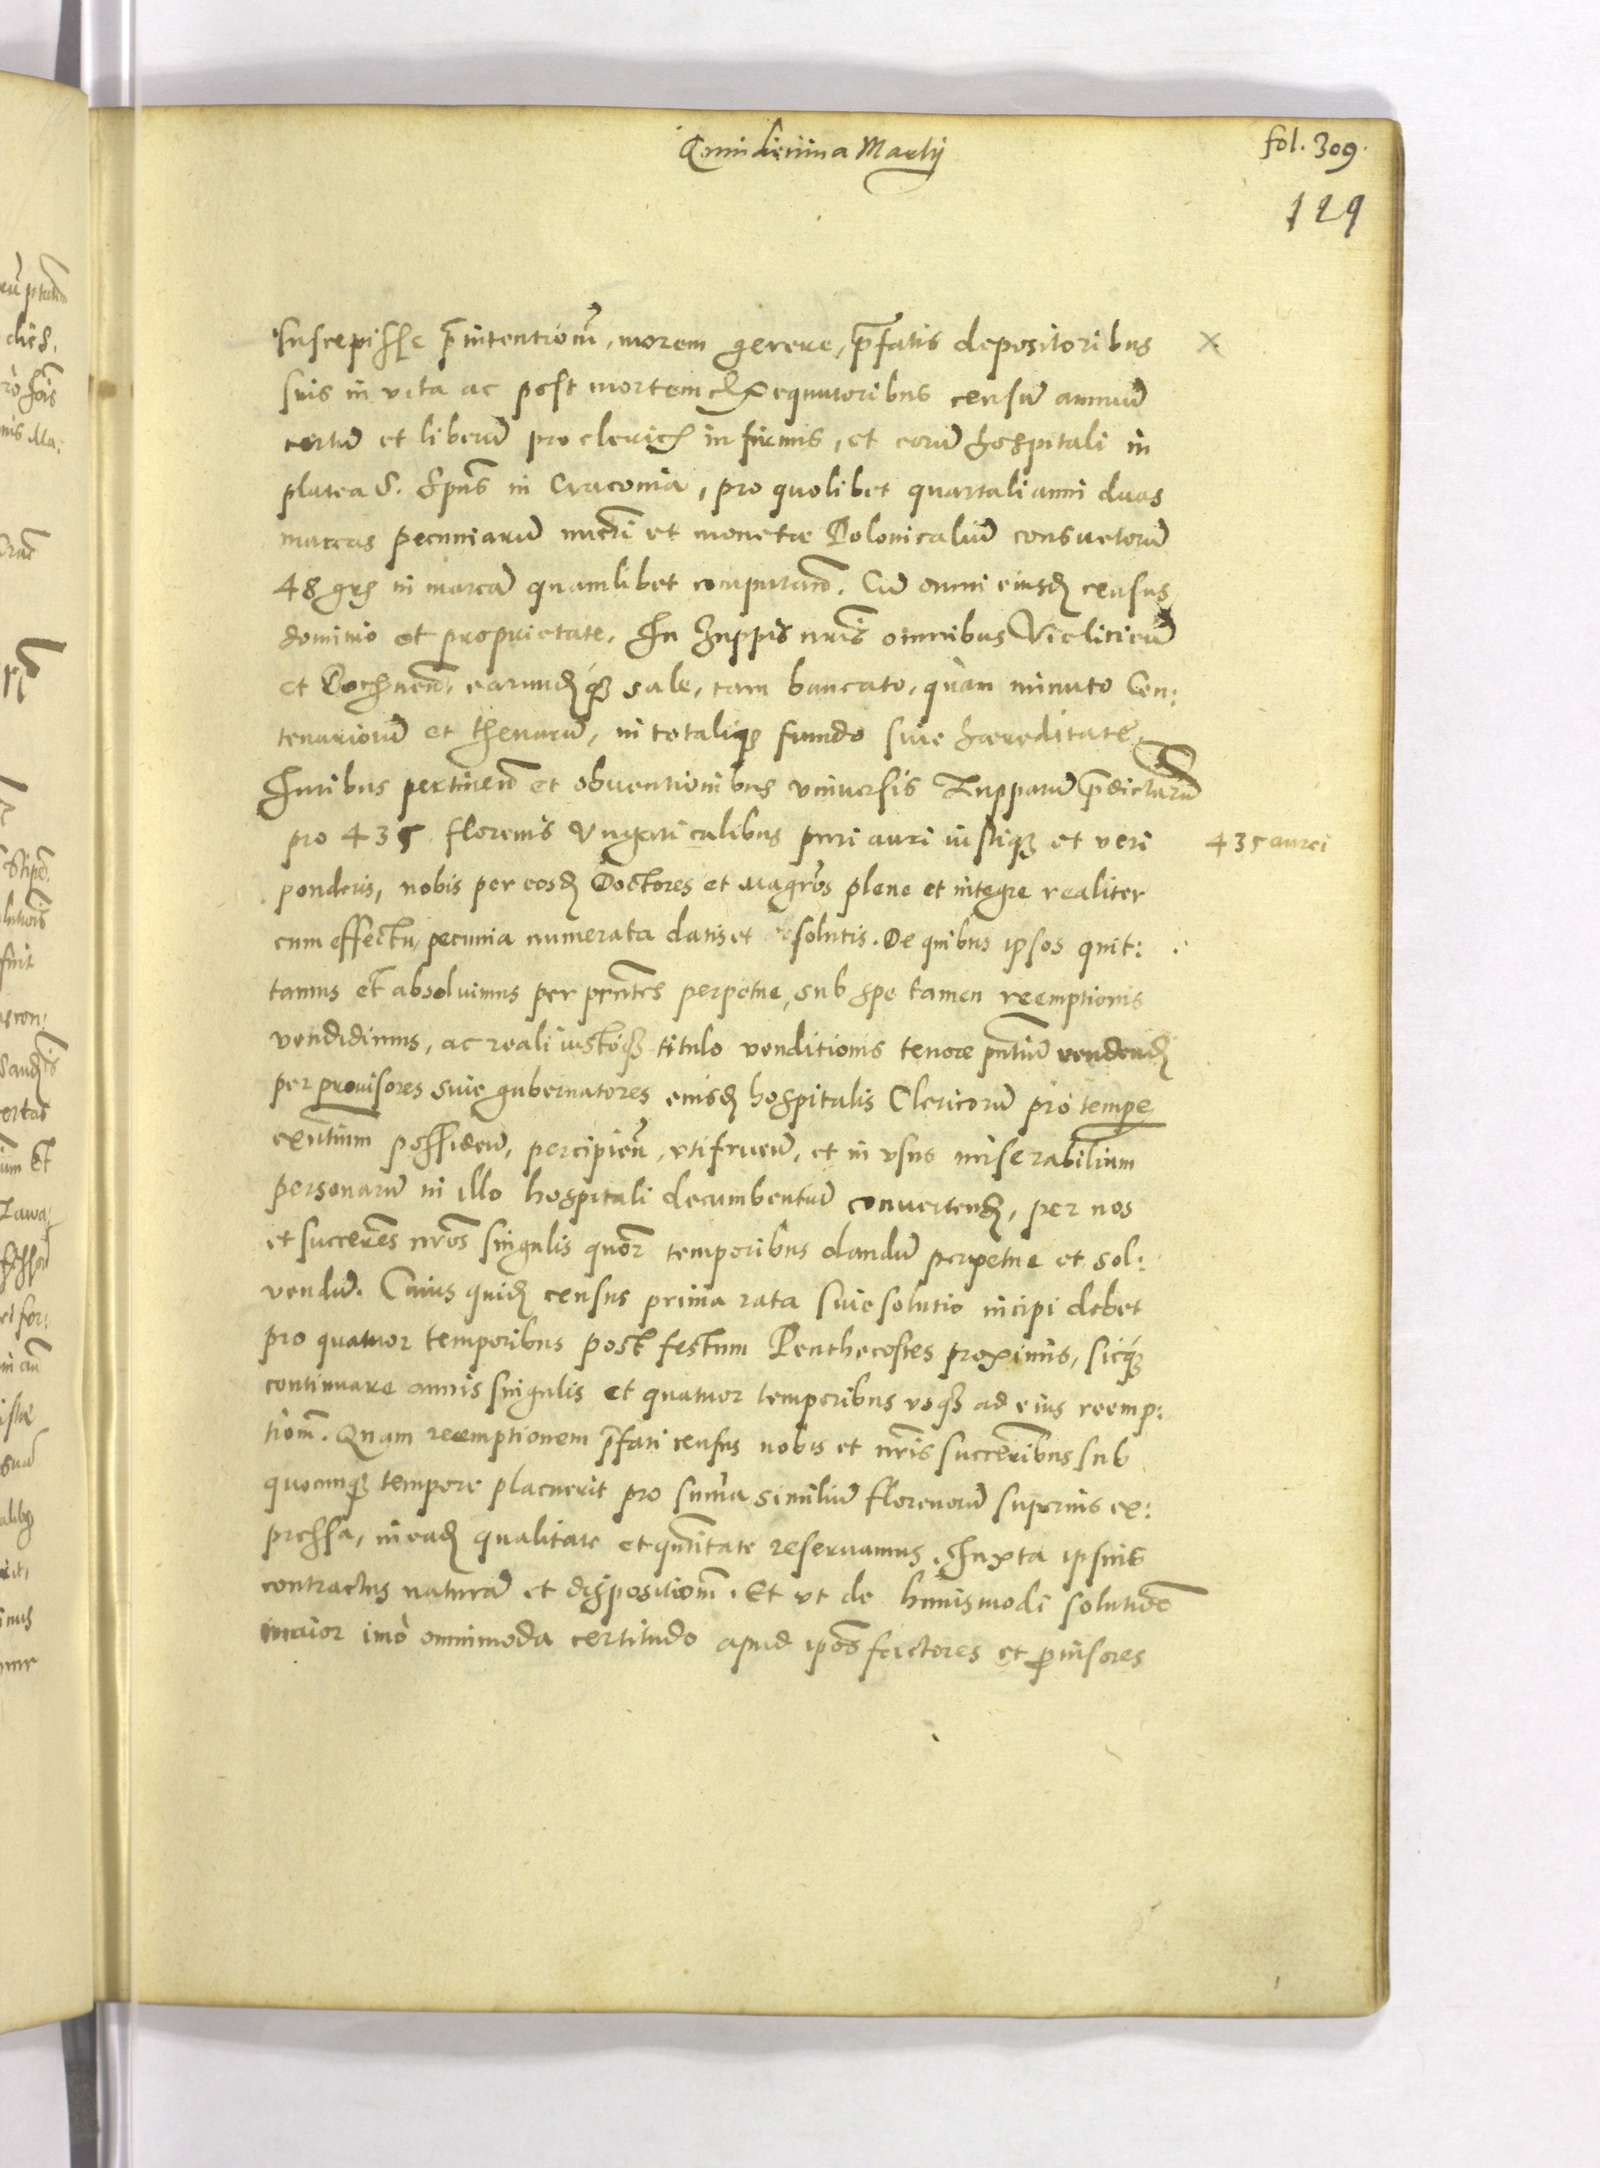 Quindecima Martij
fol. 309.
129
Suscepisse p intentionē, morem gerere, p̄fatis depositoribus
suis in vita ac post mortem exequutoribus censū annuū
certū et liberū pro clericis infirmis, et eorū hospitali in
platea S. Spūs in Cracovia, pro quolibet quartali anni duas
marcas pecuniarū numeri et monetæ Polonicaliū consuetorū
48 gros in marcā quamlibet computand. Cū omni eiusd census
dominio et proprietate. In Zuppis nr̄is omnibus Vieliciēn
et Bochnen. earundqȝ sale, tam bancato, quàm minuto Cen:
tenariorū et thenarū, in totaliqȝ fundo sive hæreditate
Iuribus pertinen et obventionibus universis Zupparū p̄dictarū
pro 435 florenis Ungaricalibus puri auri iustiqȝ et veri
435 aurei
ponderis, nobis per eosd Doctores et Magr̄os plene et integre realiter
cum effectu, pecunia numerata datis et solutis. De quibus ipsos quit:
tamus et absolvimus per pr̄ntes perpetue, sub spe tamen reemptionis
vendidimus, ac reali iustoqȝ titulo venditionis tenore pn̄tium vendend
per provisores sive gubernatores eiusd hospitalis Clericorū pro tempe
exn̄tium possiden, percipien, utifruen, et in usus miserabilium
personarū in illo hospitali decumbentiū convertend, per nos
et succeres nr̄os singulis quor temporibus dandū perpetue et sol:
vendū. Cuius quid census prima rata sive solutio incipi debet
pro quatuor temporibus post festum Penthecostes proximis, sicqȝ
continuare annis singulis et quatuor temporibus usqȝ ad eius reemp:
tionē. Quam reemptionem p̄fati census nobis et nr̄is succeribus sub
quocunqȝ tempore placuerit pro sum̄a similiū florenorū superius ex:
pressa, in ead qualitate et qn̄titate reservamus. Iuxta ipsius
contractus naturā et dispositionē. Et ut de huiusmodi solutiōe
maior imò omnimoda certitudo apud ipōs factores et provisores